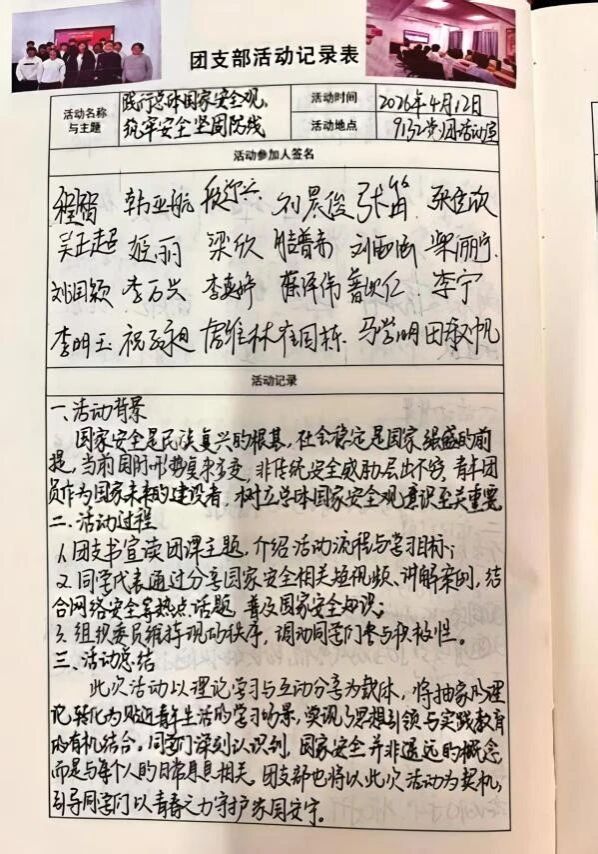 团支部活动记录表
活动名称与主题
践行总体国家安全观,
筑牢安全坚固防线
活动时间
2026年4月12日
活动地点
913艺团活动室
活动参加人签名
程智 韩亚航 刘晨俊 张笛 张佳欣
吴正超 姬丽 梁欣 刘雨涵 柴丽宁
刘润颖 李万兴 李真婷 薛泽伟 李宁
李明玉 祝子旭 唐维林 崔国栋 马学明 田毅帆
活动记录
一、活动背景
国家安全是民族复兴的根基,社会稳定是国家强盛的前
提,当前国际形势复杂多变,非传统安全威胁层出不穷,青年团
员作为国家未来的建设者,树立总体国家安全观意识至关重要
二、活动过程
1.团支书宣读团课主题,介绍活动流程与学习目标;
2.同学代表通过分享国家安全相关短视频、讲解案例,结
合网络安全等热点话题,普及国家安全知识;
3.组织委员维持现场秩序,调动同学们参与积极性。
三、活动总结
此次活动以理论学习与互动分享为载体,将抽象的理
论转化为贴近青年生活的学习场景,实现了思想引领与实践教育
的有机结合。同学们深刻认识到,国家安全并非遥远的概念
而是与每个人的日常息息相关。团支部也将以此次活动为契机,
引导同学们以青春之力守护家国安宁。